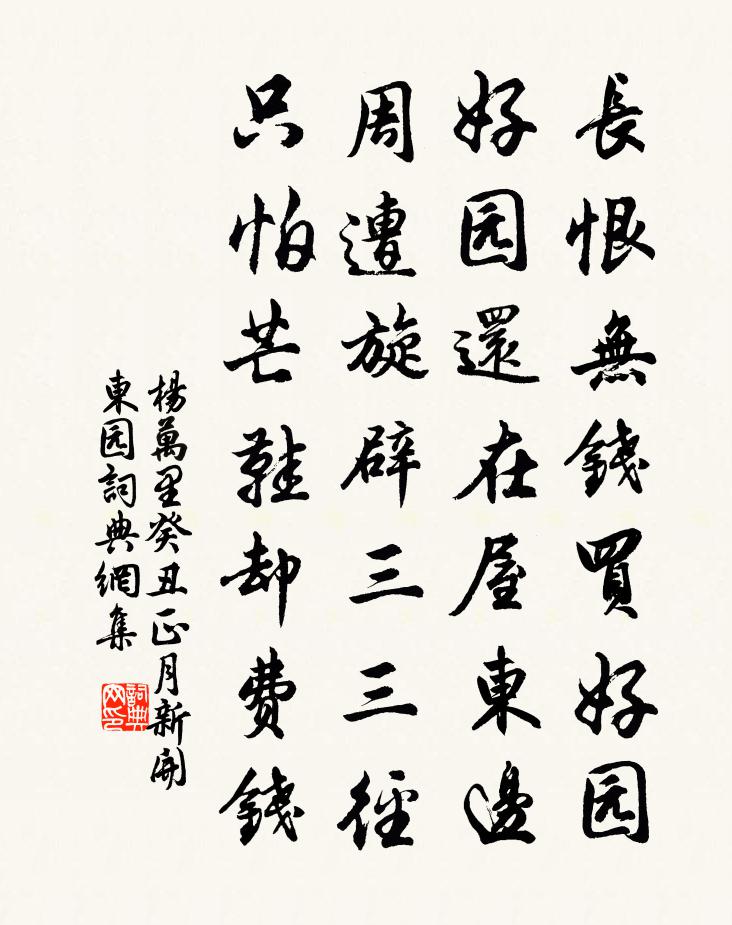 長恨無錢買好园
好园還在屋東邊
周遭旋辟三三徑
只怕芒鞋却費錢
楊萬里癸丑正月新開
東园詞典網集
詞典网印